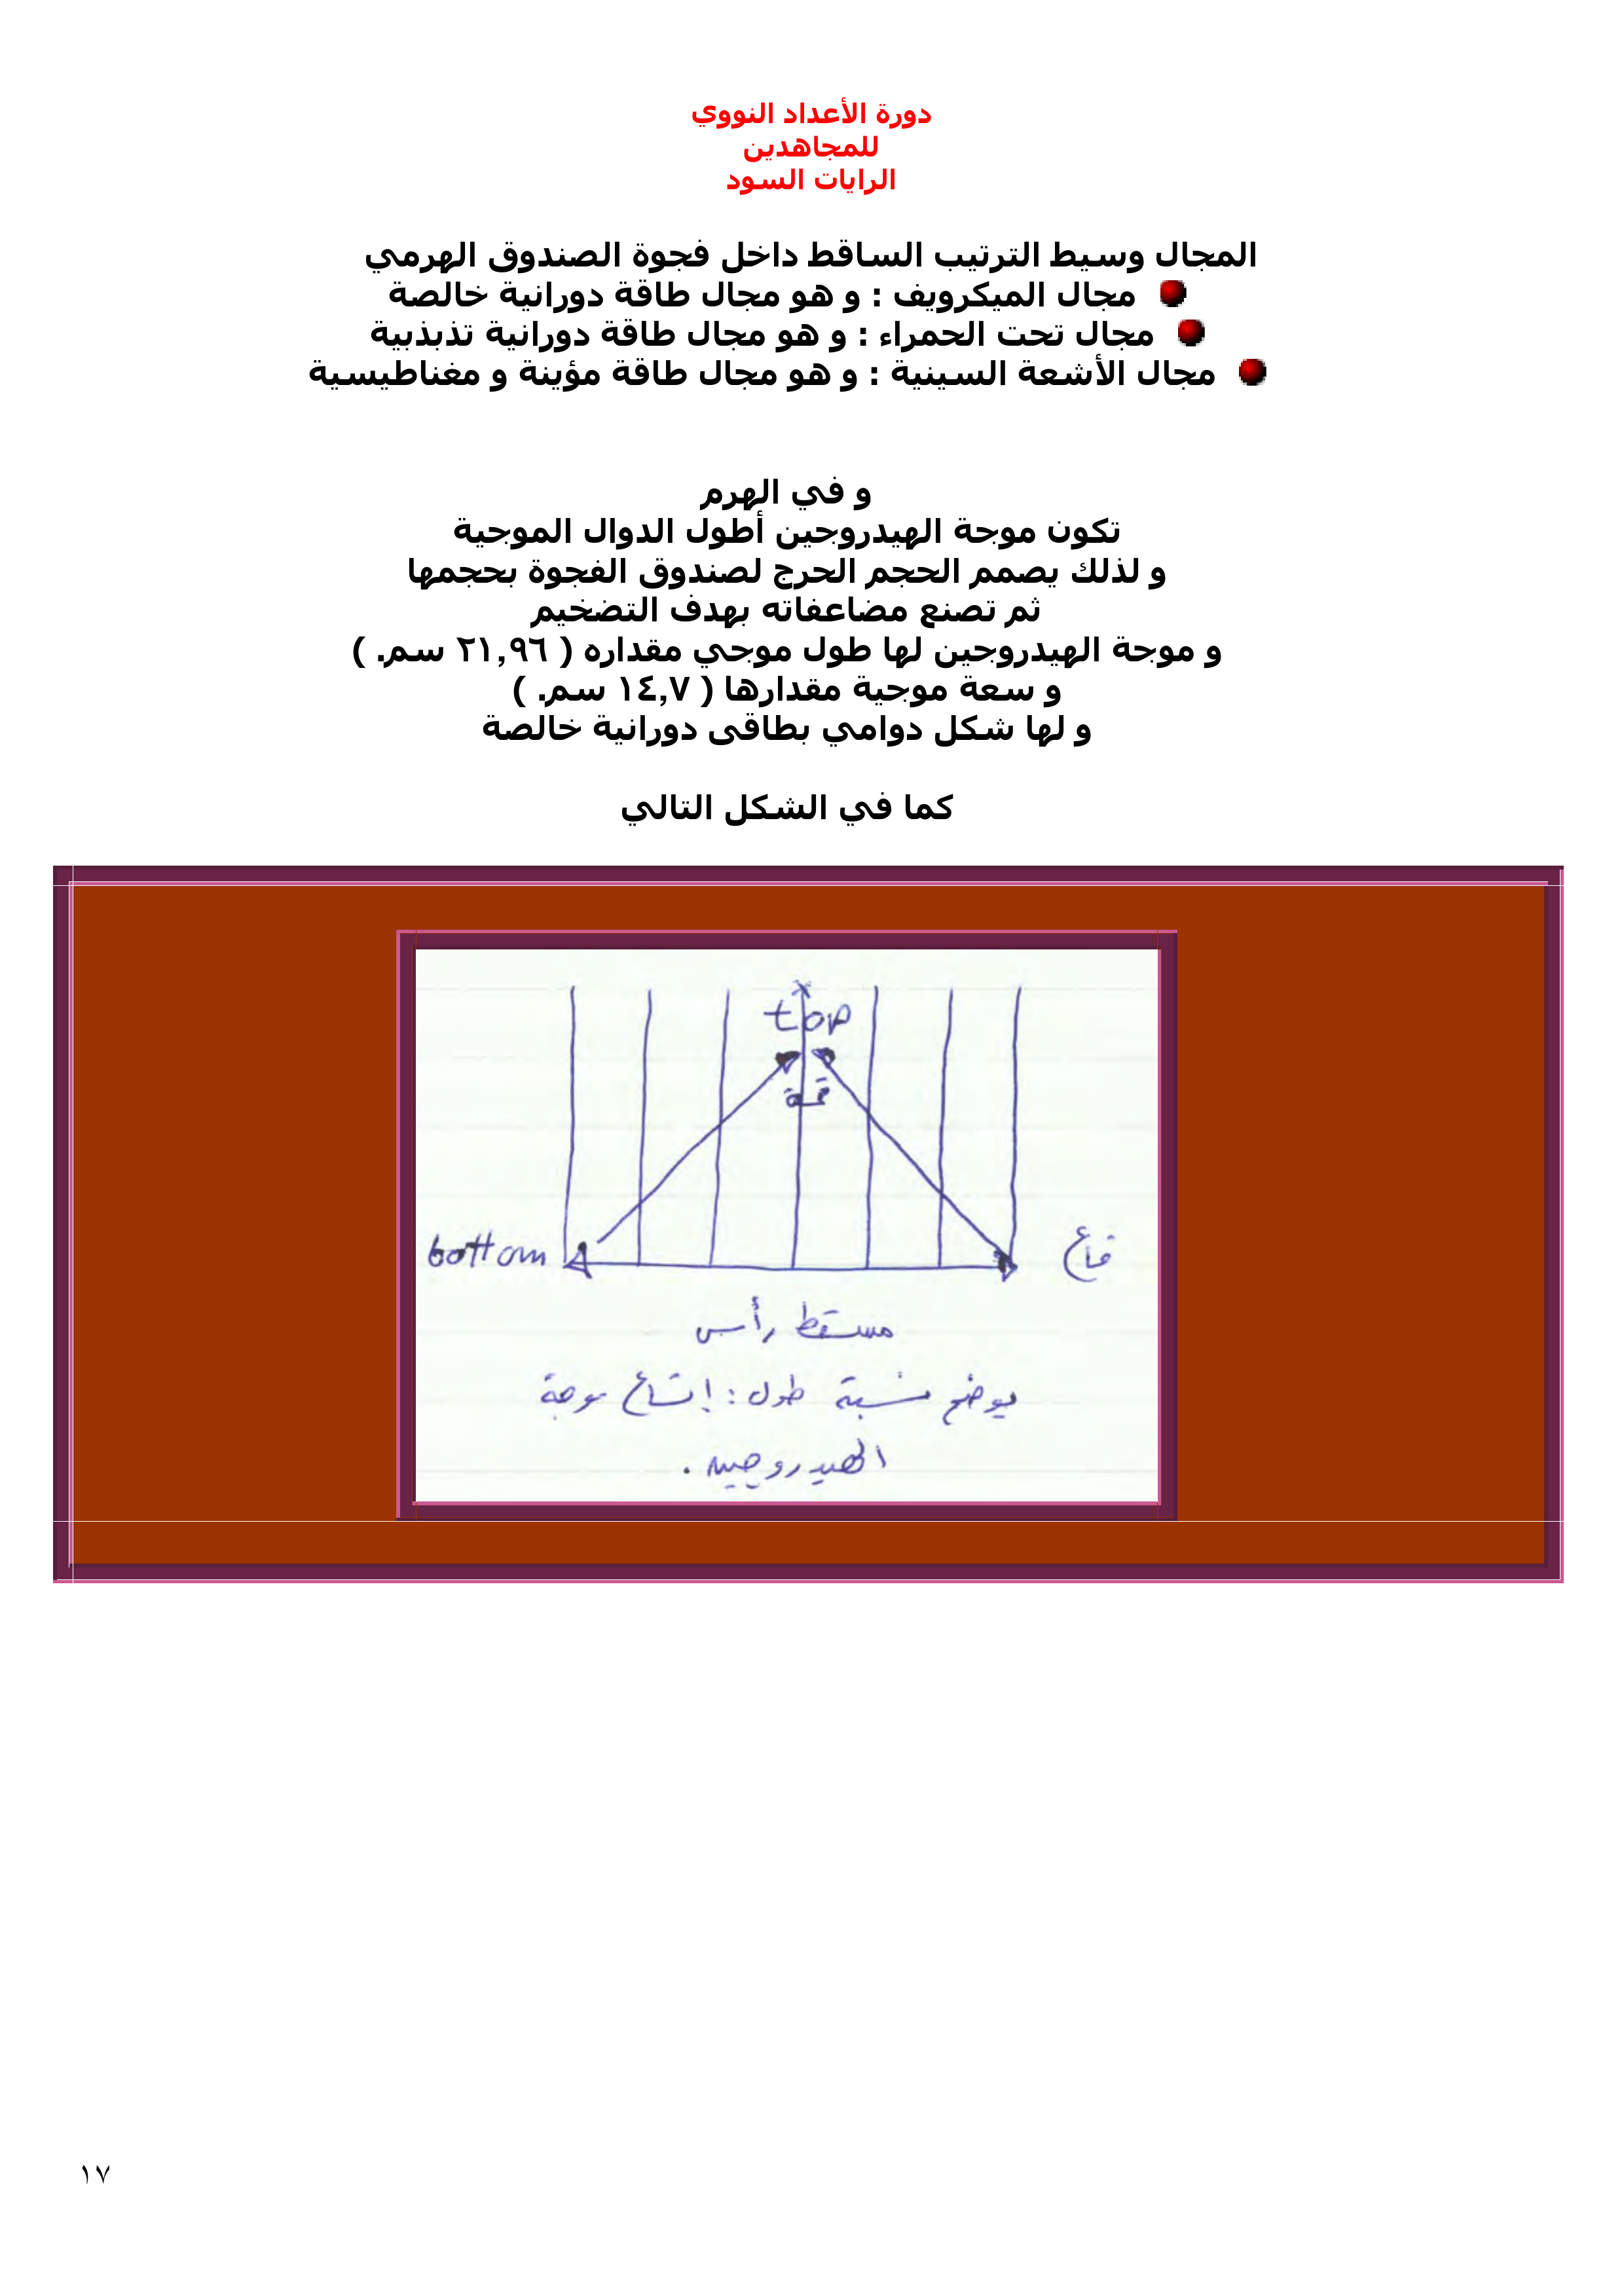 دورة الأعداد النووي
للمجاهدين
الرايات السود
المجال وسيط الترتيب الساقط داخل فجوة الصندوق الهرمي
مجال الميكرويف : و هو مجال طاقة دورانية خالصة
مجال تحت الحمراء : و هو مجال طاقة دورانية تذبذبية
مجال الأشعة السينية : و هو مجال طاقة مؤينة و مغناطيسية
و في الهرم
تكون موجة الهيدروجين أطول الدوال الموجية
و لذلك يصمم الحجم الحرج لصندوق الفجوة بحجمها
ثم تصنع مضاعفاته بهدف التضخيم
و موجة الهيدروجين لها طول موجي مقداره ( ٢١,٩٦ سم. )
و سعة موجية مقدارها ( ١٤,٧ سم. )
و لها شكل دوامي بطاقى دورانية خالصة
كما في الشكل التالي
top
قمة
bottom
قاع
مسقط رأسى
يوضح نسبة طول : إتساع موجة
الهيدروجين .
١٧